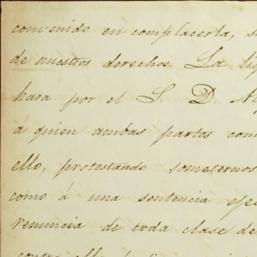 convenido en complacerla, s
de nuestros derechos. La li
hara por el S. D. A
á quien ambas partes com
ello, protestando someternos
como á una sentencia eje
renuncia de toda clase de